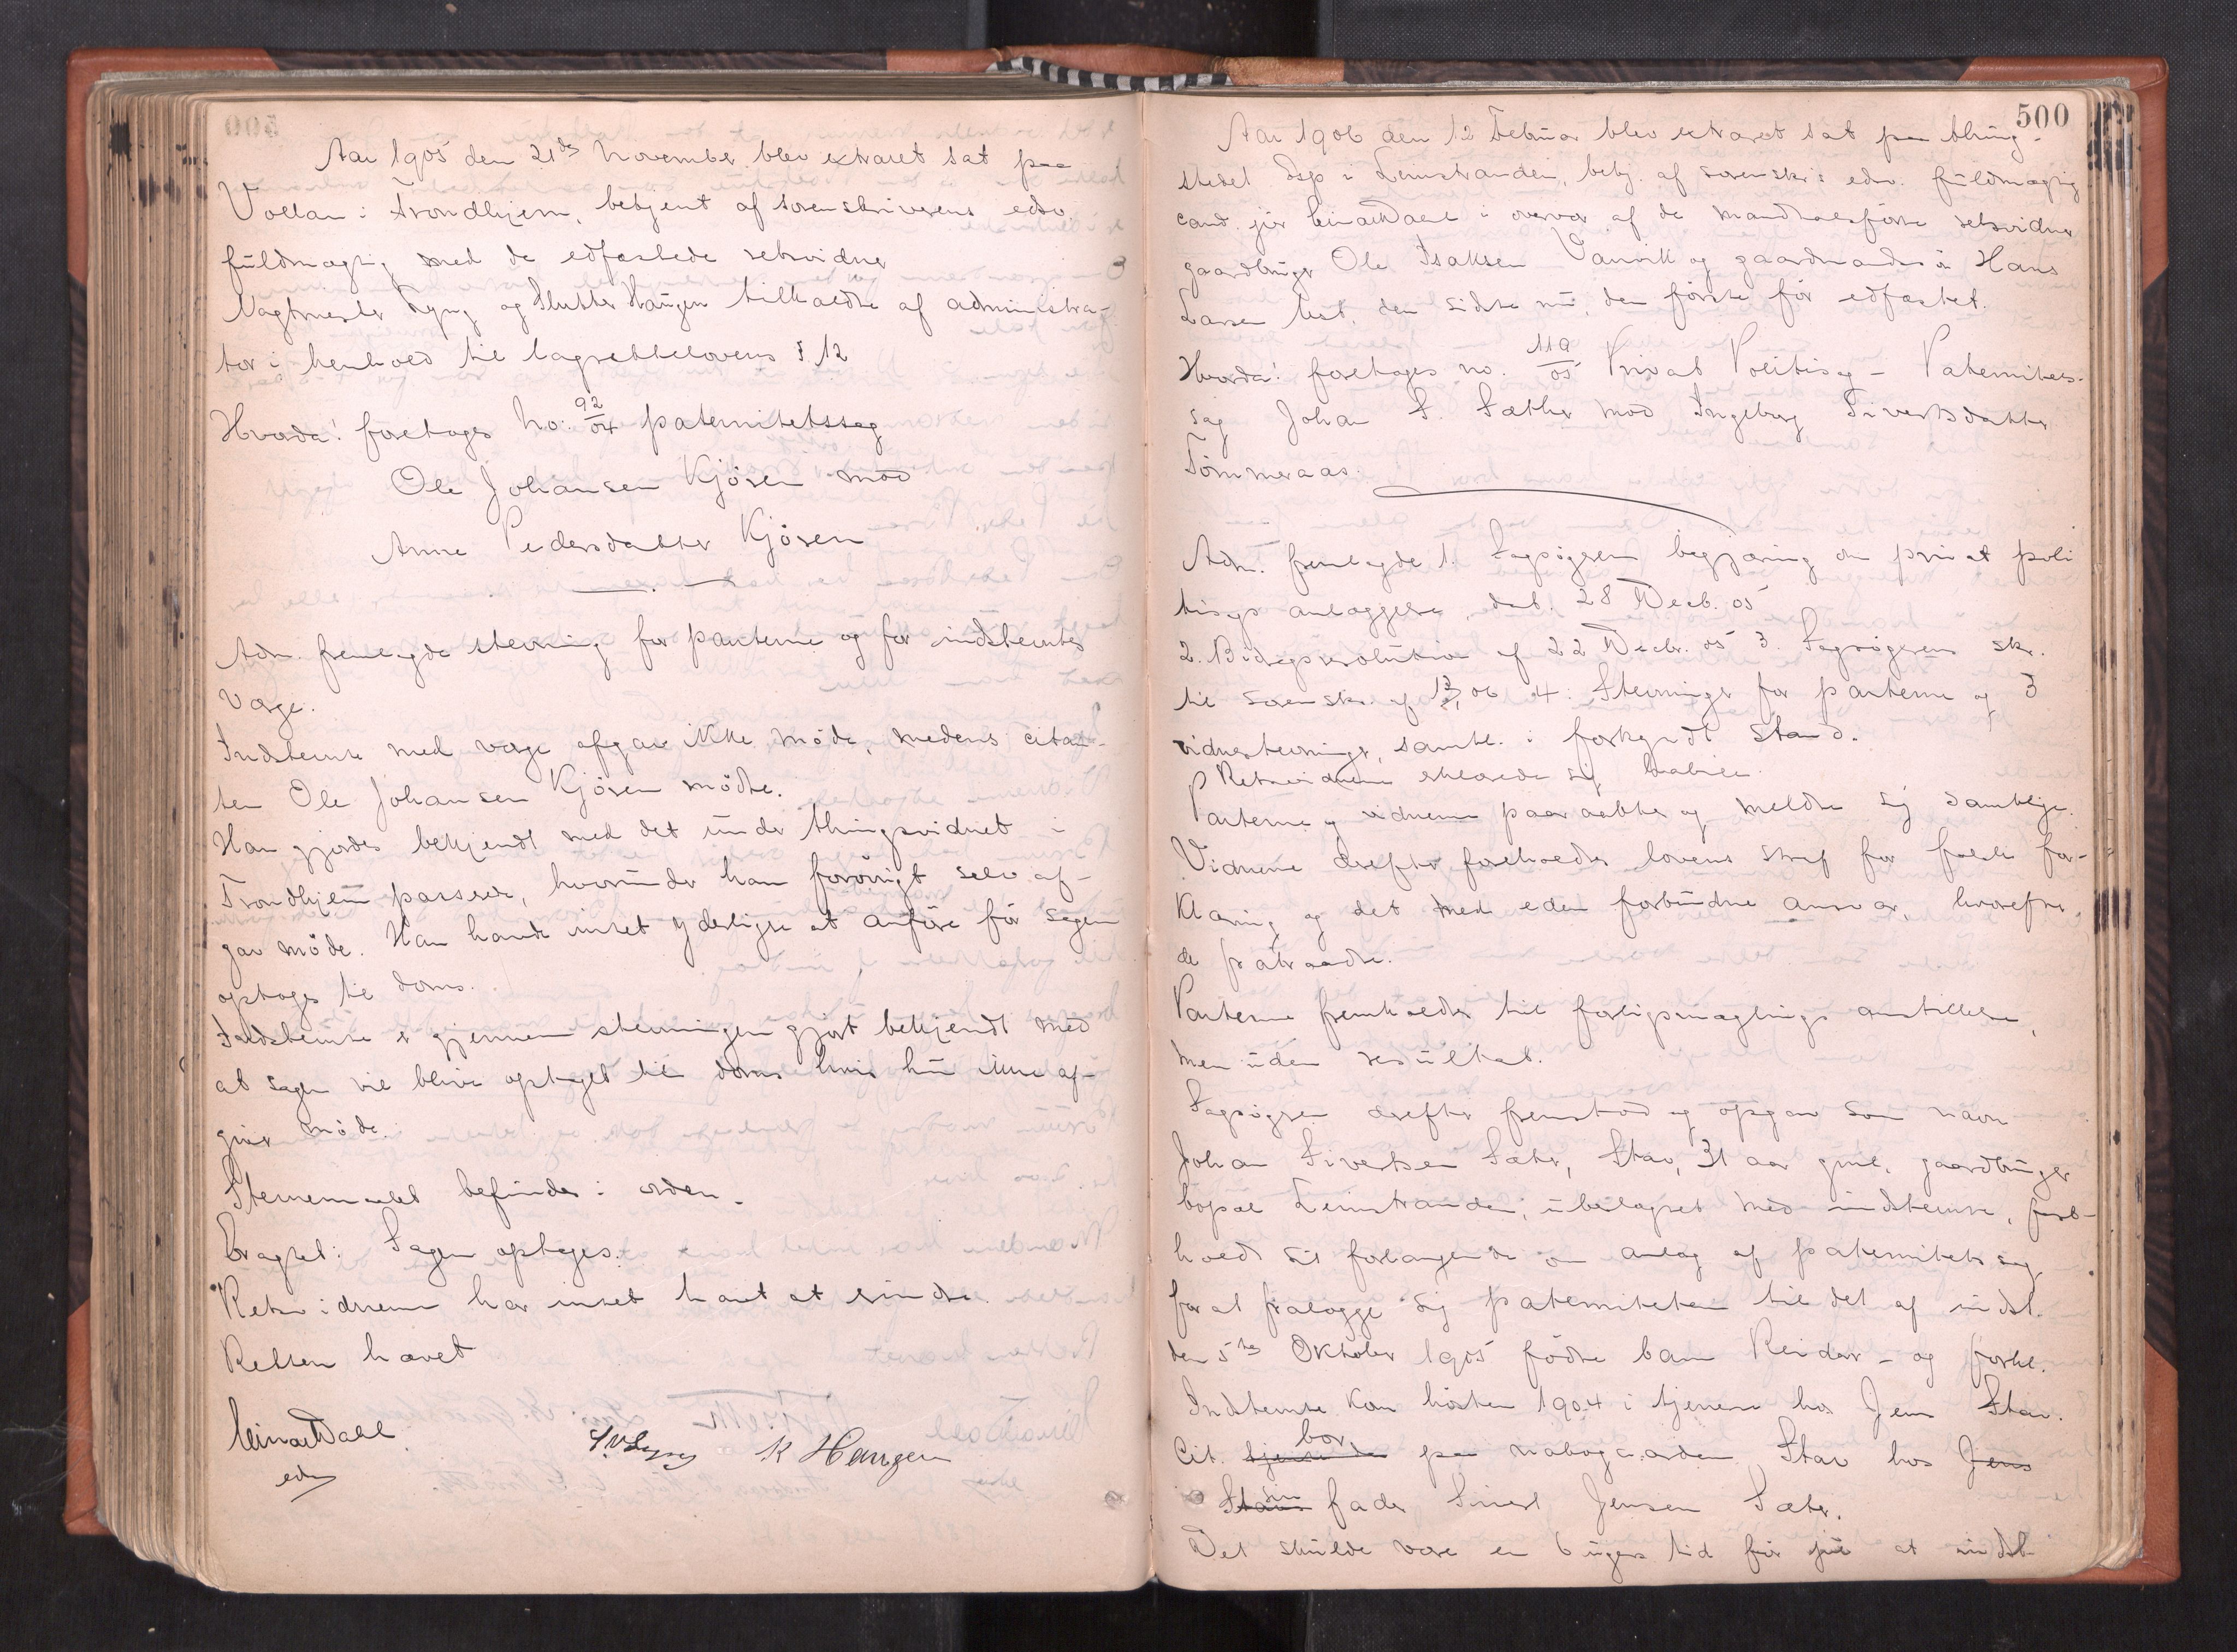 Aar 1905 den 21de November blev extraret sat paa
Vollan i Trondhjem, betjent af sorenskriverens edsv.
fuldmægtig med de edfæstede retsvidner
Vagtmester Lyng og Slutter Haugen tilkaldte af administra-
tor i henhold til lagrettelovens § 12
Hvorda! foretoges No. 92/04 paternitetssag
Ole Johansen Kjösen mod
Anne Pedersdatter Kjösen
Adm. fremlagde stevning for parterne og for indstevntes
verge.
Indstevnte med verge afgav ikke möde, medens citan-
ten Ole Johansen Kjösen mödte.
Han gjordes bekjendt med det under thingsvidnet i
Trondhjem passerede, hvorunder han forövrigt selv af-
gav möde. Han havde intet yderligere at anföre för sagen
optoges til doms.
Indstevnte er gjennem stevningen gjort bekjendt med
at sagen vil blive optaget til doms hvis hun ikke af-
giver möde.
Stevnemaalet befindes i orden.
Eragtet: Sagen optages.
Retsvidnerne har intet havt at erindre.
Retten hævet
Einar Dahl
edsv
Lyng K Haugen
500
Aar 1906 den 12 Februar blev extraret sat paa thing-
stedet Esp i Leinstranden, betj. af sorenskr.s edsv. fuldmægtig
cand. jur Einar Dahl i overvær af de mandtalsförte retsvidner
gaardbruger Ole Isaksen Vanvik og gaardmandss. Hans
Larsen Ust, den sidste nu, den förste för edfæstet.
Hvorda! foretoges no. 119/05 Privat Politisag - Paternitets-
sag Johan S. Sæther mod Ingeborg Sivertsdatter
Tömmeraas.
Adm. fremlagde 1. Sagsögeren begjæring om privat poli
tisags anlæggelse, dat. 28 Decb. 05
2. Bidragsresolution af 22 Decbr. 05 3. Sagsögerens skr.
til sorenskr. af 06 4. Stevninger for parterne og 3
vidnestevninger, samtl. i forkyndt stand.
Retsvidnerne erklærede sig habile.
Parterne og vidnerne paaraabtes og meldte sig samtlige.
Vidnerne derefter foreholdtes lovens straf for falsk for-
klaring og det med eden forbundne ansvar, hvorefter
de fratraadte.
Parterne fremkaldtes til forligsmæglings anstillelse,
men uden resultat.
Sagsögeren derefter fremstod og opgav som navn
Johan Sivertsen Sæter, Stav, 31 aar gml. gaardbruger
bopæl Leinstranden, ubeslægtet med indstevnte, fast-
holdt sit forlangende om anlæg af paternitetssag
for at fralægge sig paterniteten til det af indst.
den 5te Oktober 1905 födte barn Reidar - og forkl.
Indstevnte kom hösten 1904 i tjeneste hos Jens Stav.
Cit. tjenende bor paa nabogaarden Stav hos Jens
Stavs sin fader Sivert Jensen Sæter.
Det skulde være en 6 ugers tid för jul at indst.